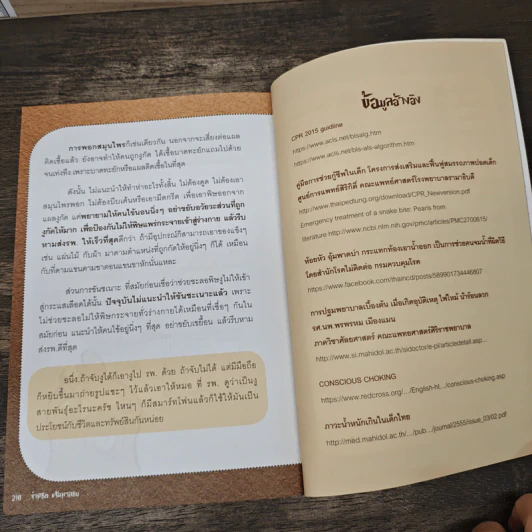 การพอกสมุนไพรก็เช่นเดียวกัน นอกจากจะเสี่ยงต่อแผล
ติดเชื้อแล้ว ยังอาจทำให้คนถูกงูกัด ได้เชื้อบาดทะยักแถมไปด้วย
จนเท่งทึง เพราะบาดทะยักหรือแผลติดเชื้อในที่สุด
ดังนั้น ไม่แนะนำให้ทำห่าอะไรทั้งสิ้น ไม่ต้องดูด ไม่ต้องเอา
สมุนไพรพอก ไม่ต้องบีบเค้นหรือเอามีดกรีด เพื่อเอาพิษออกจาก
แผลงูกัด แค่พยายามให้คนไข้นอนนิ่งๆ อย่าขยับอวัยวะส่วนที่ถูก
งูกัดให้มาก เพื่อป้องกันไม่ให้พิษแพร่กระจายเข้าสู่ร่างกาย แล้วรีบ
หามส่งรพ. ให้เร็วที่สุดดีกว่า ถ้ามีอุปกรณ์ก็สามารถเอาของแข็งๆ
เช่น แผ่นไม้ กับผ้า มาดามตำแหน่งที่ถูกกัดให้อยู่นิ่งๆ ก็ได้ เหมือน
กับที่ดามแขนดามขาตอนแขนขาหักนั่นแหละ
ส่วนการขันชะเนาะ ที่สมัยก่อนเชื่อว่าช่วยชะลอพิษงูไม่ให้เข้า
สู่กระแสเลือดได้นั้น ปัจจุบันไม่แนะนำให้ขันชะเนาะแล้ว เพราะ
ไม่ช่วยชะลอไม่ให้พิษกระจายทั่วร่างกายได้เหมือนที่เชื่อๆ กันใน
สมัยก่อน แนะนำให้คนไข้อยู่นิ่งๆ ที่สุด อย่าขยับเขยื้อน แล้วรีบหาม
ส่งรพ.ดีที่สุด
อนึ่ง.ถ้าจับงูได้ก็เอางูไป รพ. ด้วย ถ้าจับไม่ได้ แต่มีมือถือ
ก็หยิบขึ้นมาถ่ายรูปแชะๆ ไว้แล้วเอาให้หมอ ที่ รพ. ดูว่าเป็นงู
สายพันธุ์อะไรนะครัช ไหนๆ ก็มีสมาร์ทโฟนแล้วก็ใช้ให้มันเป็น
ประโยชน์กับชีวิตและทรัพย์สินกันหน่อย
ข้อมูลอ้างอิง
CPR 2015 guidline
https://www.acis.net/blsalg.htm
https://www.acis.net/bls-als-algorithm.htm
คู่มือการช่วยกู้ชีพในเด็ก โครงการส่งเสริมและฟื้นฟูสมรรถภาพปอดเด็ก
ศูนย์การแพทย์สิริกิติ์ คณะแพทยศาสตร์โรงพยาบาลรามาธิบดี
http://www.thaipedlung.org/download/CPR_Newversion.pdf
Emergency treatment of a snake bite: Pearls from
literature http://www.ncbi.nlm.nih.gov/pmc/articles/PMC2700615/
ห้อยหัว อุ้มพาดบ่า กระแทกท้องเอาน้ำออก เป็นการช่วยคนจมน้ำที่ผิดวิธี
โดยสำนักโรคไม่ติดต่อ กรมควบคุมโรค
https://www.facebook.com/thaincd/posts/589901734446807
การปฐมพยาบาลเบื้องต้น เมื่อเกิดอุบัติเหตุ ไฟไหม้ น้ำร้อนลวก
รศ.นพ.พรพรหม เมืองแมน
ภาควิชาศัลยศาสตร์ คณะแพทยศาสตร์ศิริราชพยาบาล
http://www.si.mahidol.ac.th/sidoctor/e-pl/articledetail.asp...
CONSCIOUS CHOKING
http://www.redcross.org/.../English-ht.../conscious-choking.asp
ภาวะน้ำหนักเกินในเด็กไทย
http://med.mahidol.ac.th/.../pub.../journal/2555/issue_03/02.pdf